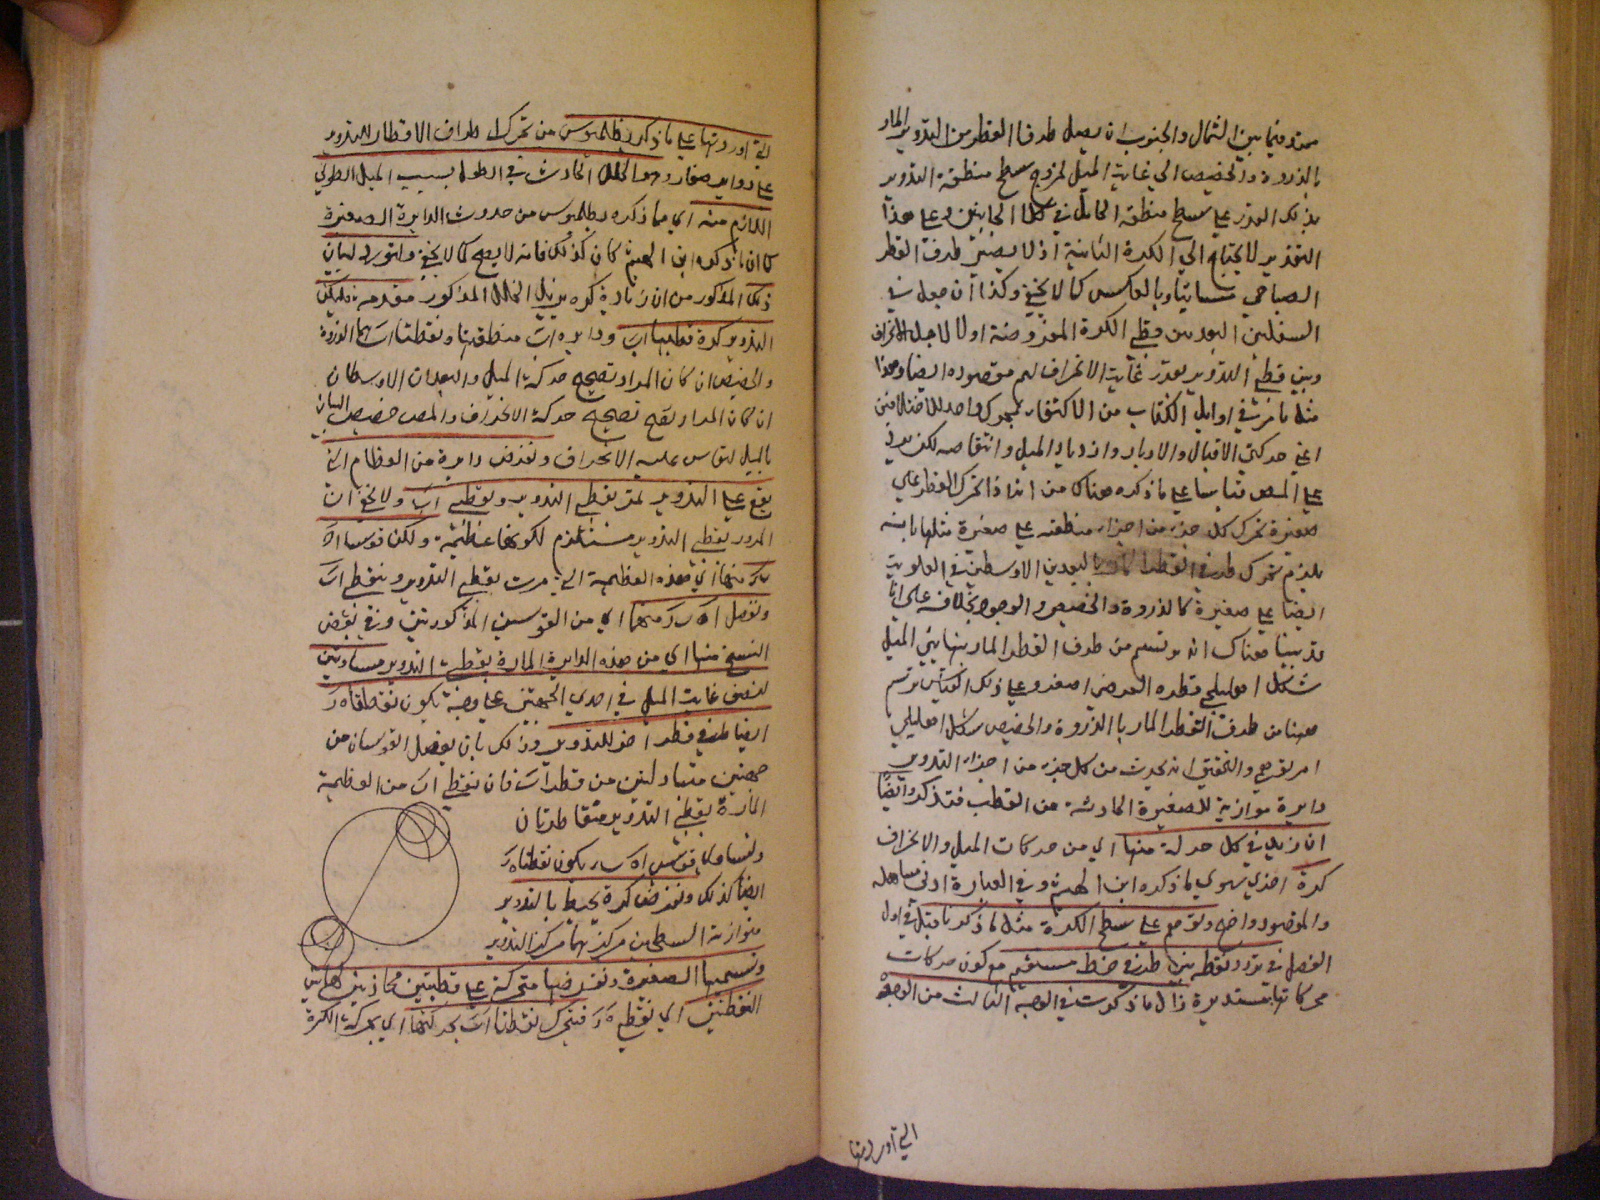 مترو فيما بين الشمال والجنوب ان يصل طرفا القطر من التدوير المار
بالذروة والحضيض الى غاية الميل لخروج سطح منطقة التدوير
بذلك القدر على سطح منطقة الحامل في كلا الجانبين وعلى هذا
التقدير لا يحتاج الى الكرة الثانية اذ لا يصير طرف القطر
الصباحي مسائيا وبالعكس كما لا يخفى وكذا ان جعل في
السفليين البعد بين قطبي الكرة المفروضة اولا لاجل الانحراف
وبين قطبي التدوير بقدر غاية الانحراف لهم مقصوده ايضا وهذا
مثل ما مر في اوايل الكتاب من الاكتفاء بمحرك واحد لاختلافين
اعني حركتي الاقبال والادبار وازدياد الميل وانتقاصه لكن يرد
على المص قياسا على ما ذكره هناك من انه اذا تحرك القطر على
صغيرة تحرك كل جزء من اجزاء منطقته على صغيرة مثلها بانه
يلزم تحرك طرفي القطر المار بالبعدين الاوسطين في العلوية
ايضا على صغيرة كالذروة والحضيض والوجود بخلافه على انا
قد بينا هناك انه يرتسم من طرف القطر المار بنهايتي الميل
شكل اهليلجي قطره العرضي اصغر وعلى ذلك القياس يرتسم
ههنا من طرف القطر المار بالذروة والحضيض شكل اهليلجي
امر تقريبي والتحقيق انه يحدث من كل جزء من اجزاء التدوير
دايرة موازية للصغيرة الحادثة من القطب فتذكر وايضا
ان زيد في كل حركة منها اي من حركات الميل والانحراف
كرة اخرى سوى ما ذكره ابن الهيثم وفي العبارة ادنى مساهلة
والمقصود واضح وتوهم على سطح الكرة مثل ما ذكرنا قبل في اول
الفصل في تردد نقطة بين طرفي خط مستقيم مع كون حركات
محركاتها مستديرة زال ما ذكرت في الوجه الثالث من الوجوه
التي اوردتها
التي اوردتها على ما ذكره بطلميوس من تحرك اطراف الاقطار للتدوير
على دواير صغار وهو الخلل الحادث في الطول بسبب الميل الطولي
اللازم منه اي مما ذكره بطلميوس من حدوث الدايرة الصغيرة
كما ان ما ذكره ابن الهيثم كان كذلك فانه لا يصح كما لا يخفى ولنورد لبيان
ذلك المذكور من ان زيادة كرة يزيل الخلل المذكور مقدمة فليكن
التدوير كرة قطباها اب ودايرة اب منطقتها ونقطتا اب هما الذروة
والحضيض ان كان المراد تصحيح حركة الميل والبعدان الاوسطان
ان كان المراد تصحيح حركة الانحراف والمص خصص البيان
بالميل ليقاس عليه الانحراف ونفرض دايرة من العظام التي
تقع على التدوير تمر بقطبي التدوير وبنقطتي اب ولا يخفى ان
المرور بقطبي التدوير مستلزم لكونها عظيمة ولكن قوسا اه
ب ر منها اي هذه العظيمة التي مرت بقطبي التدوير وبنقطتي اب
ونفصل اه ب ر منها اي من القوسين المذكورتين وفي بعض
النسخ منها اي من هذه الدايرة المارة بقطبي التدوير مساويتين
لنصف غاية الميل في احدى الجهتين على وضع تكون نقطتا ه ر
ايضا طرفي قطر اخر للتدوير وذلك بان يفصل القوسان من
جهتين متبادلتين من قطر اب فان نقطتي اب من العظيمة
المارة بقطبي التدوير متقاطرتان
ولتساوي قوسي اه ب ر يكون نقطتا ه ر
ايضا كذلك ونفرض كرة يحيط بالتدوير
متوازية السطحين مركزهما مركز التدوير
ونسميها الصغيرة ونفرضها متحركة على قطبين محاذيين لهاتين
النقطتين اي نقطتي ه ر فيتحرك نقطتا اب بحركتها اي بحركة الكرة